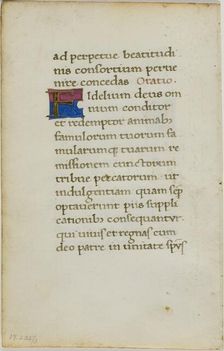 ad perpetue beatitudi
nis consortium perue
nire concedas Oratio.
Fidelium deus om
nium conditor
et redemptor animabꝫ
famulorum tuorum fa
mularumqꝫ tuarum re
missionem cunctorum
tribue peccatorum ut
indulgentiam quam sep
optauerunt piis suppli
cationibꝫ consequantur.
qui uiuis et regnas cum
deo patre in unitate spūs